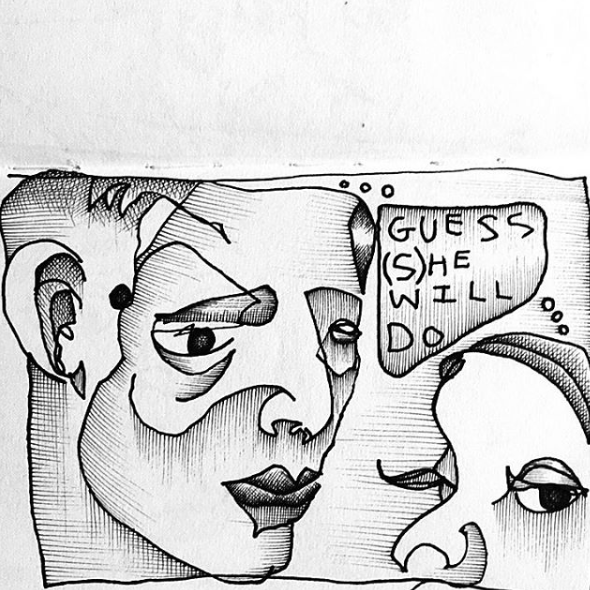 GUESS
(S)HE
WILL
DO